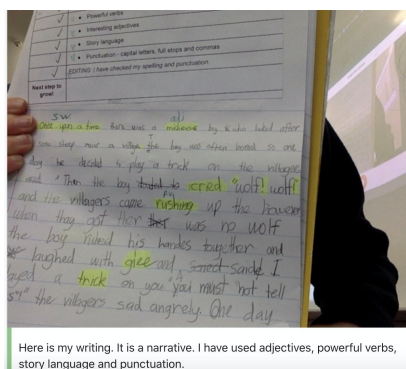 Powerful verbs
Interesting adjectives
Story language
Punctuation - capital letters, full stops and commas
EDITING: I have checked my spelling and punctuation.
Next step to grow:
SW adj
Once upon a time there was a boy who looked after
sheep near a village the boy was often bored so one
day he decided to play a trick on the villagers
Then the boy cried "wolf! wolf!
and the villagers came rushing up the however
when they got ther was no wolf
the boy his handes together and
laughed with glee and I
a trick on you you must not tell
the villagers sad angrely. One day
Here is my writing. It is a narrative. I have used adjectives, powerful verbs,
story language and punctuation.